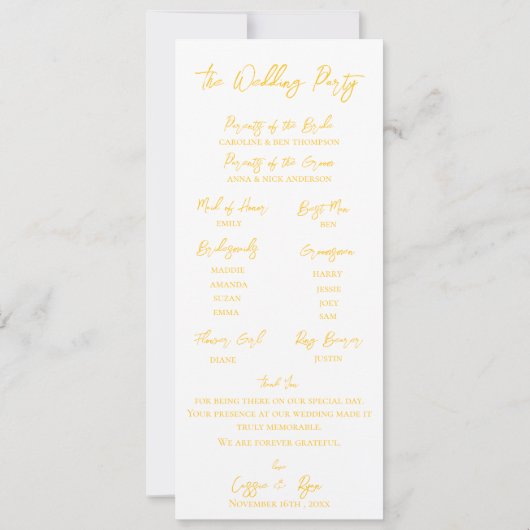 the Wedding Party
Parents of the Bride
CAROLINE & BEN THOMPSON
Parents of the Groom
ANNA & NICK ANDERSON
Maid of Honor
EMILY
Best Man
BEN
Bridesmaids
MADDIE
AMANDA
SUZAN
EMMA
Groomsmen
HARRY
JESSIE
JOEY
SAM
Flower Girl
DIANE
Ring Bearer
JUSTIN
thank You
FOR BEING THERE ON OUR SPECIAL DAY.
YOUR PRESENCE AT OUR WEDDING MADE IT
TRULY MEMORABLE.
WE ARE FOREVER GRATEFUL.
love
Cassie & Ryan
NOVEMBER 16TH , 20XX